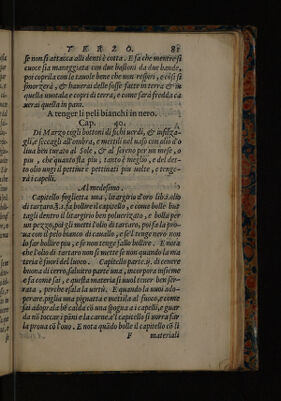 TERZO. 81
se non si attacca alli denti è cotta. E fa che mentre si
cuoce sia maneggiata con duo bastoni da due bande,
poi coprila con le tauole bene che non respiri, e cosi si
smorzerà, & hauerai delle fosse fatte in terra & in
quella vuotala e copri di terra, e come sarà fredda ca
uerai quella in pani.
A tenger li peli bianchi in nero.
Cap. 40.
Di Marzo togli bottoni di fichi verdi, &
e seccagli all'ombra, e mettili nel vaso con olio o
uaso ben turato al Sole, & al sereno per un mese, o
piu, che quanto sta piu, tanto è meglio, e del det-
to olio ungi il pettine e pettinati piu volte, e tenge-
rà i capelli.
Al medesimo.
Capitello foglietta una, litargirio d'oro lib. 2. olio
di tartaro. 3. 2. fa bollire il capitello, e come bolle but
tagli dentro il litargirio ben poluerizato, e bolla per
un pezzo, poi gli metti l'olio di tartaro, poi fa la pro
ua con il pelo bianco di cauallo, e se'l tenge nero non
lo far bollire piu, se non tenge fallo bollire. E nota
che l'olio di tartaro non si mette se non quando la ma
teria è fuori del fuoco. Capitello parte. ij. di cenere
buona di cerro, salnitro parte una, incorpora insieme
e fa come sai, e questa materia si vuol tener ben ser-
rata, perche esala la virtù. E quando la vuoi ado-
perare, piglia una pignatta e mettila al fuoco, e come
sai adoprala bẽ calda cõ una spogna a i capelli, e guar
da nõ toccar i pãni e la carne. e'l capitello si vorra far
la proua cõ l'ouo. E nota quãdo bolle il capitello cõ li
F materiali